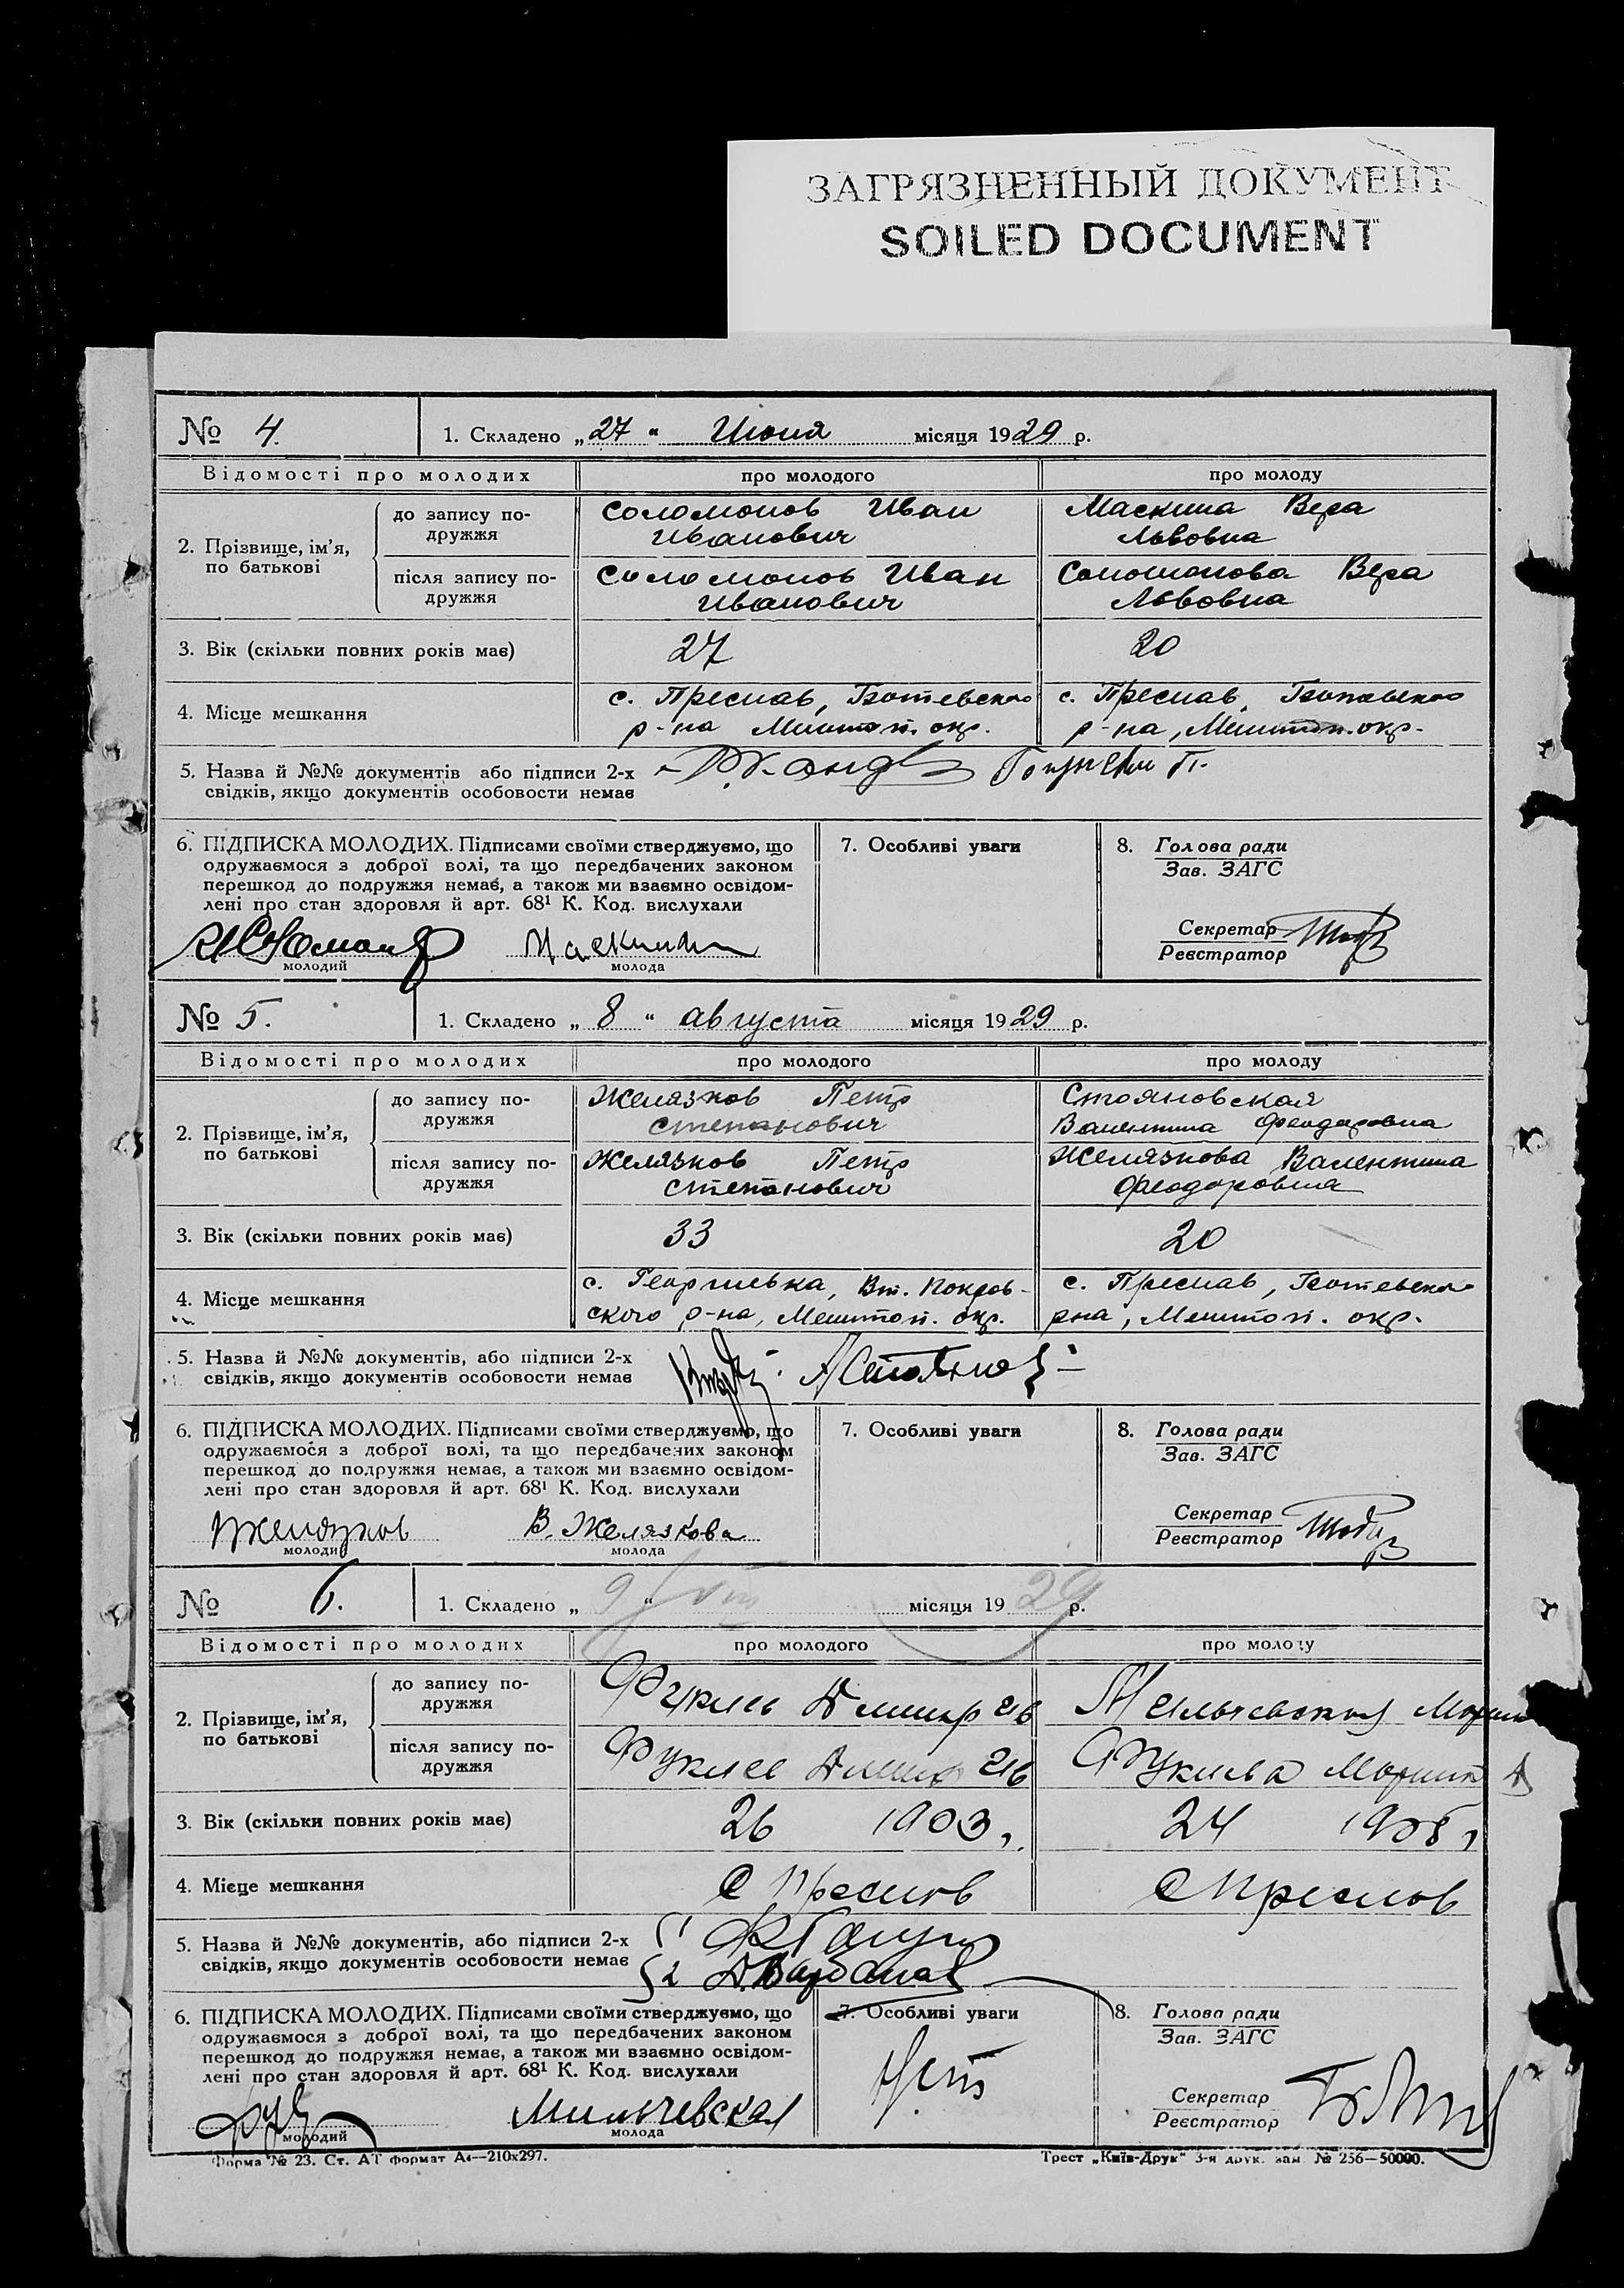 ЗАГРЯЗНЕННЫЙ ДОКУМЕНТ
SOILED DOCUMENT
№ 4. 1. Складено „27“ Июня місяця 1929 р.
Відомості про молодих про молодого про молоду
2. Прізвище, ім'я, по батькові
до запису подружжя
Соломонов Иван
Иванович
Маскина Вера
Львовна
після запису подружжя
Соломонов Иван
Иванович
Соломонова Вера
Львовна
3. Вік (скільки повних років має) 27 20
4. Місце мешкання
с. Преслав, Ботевского
р-на Мелитоп. окр.
с. Преслав, Ботевского
р-на, Мелитоп. окр.
5. Назва й №№ документів або підписи 2-х
свідків, якщо документів особовости немає
6. ПІДПИСКА МОЛОДИХ. Підписами своїми стверджуємо, що
одружаємося з доброї волі, та що передбачених законом
перешкод до подружжя немає, а також ми взаємно освідом-
лені про стан здоровля й арт. 68¹ К. Код. вислухали
молодий молода
7. Особливі уваги
8. Голова ради
Зав. ЗАГС
Секретар
Реєстратор
№ 5. 1. Складено „8“ августа місяця 1929 р.
Відомості про молодих про молодого про молоду
2. Прізвище, ім'я, по батькові
до запису подружжя
Желязков Петр
Степанович
Стояновская
Валентина Феодоровна
після запису подружжя
Желязков Петр
Степанович
Желязкова Валентина
Феодоровна
3. Вік (скільки повних років має) 33 20
4. Місце мешкання
с. Георгиевка, Вт. Покров-
ского р-на, Мелитоп. окр.
с. Преслав, Ботевского
рна, Мелитоп. окр.
5. Назва й №№ документів, або підписи 2-х
свідків, якщо документів особовости немає
6. ПІДПИСКА МОЛОДИХ. Підписами своїми стверджуємо, що
одружаємося з доброї волі, та що передбачених законом
перешкод до подружжя немає, а також ми взаємно освідом-
лені про стан здоровля й арт. 68¹ К. Код. вислухали
Желязков В. Желязкова
молодий молода
7. Особливі уваги
8. Голова ради
Зав. ЗАГС
Секретар
Реєстратор
№ 6. 1. Складено „9“ місяця 1929 р.
Відомості про молодих про молодого про молоду
2. Прізвище, ім'я, по батькові
до запису подружжя
після запису подружжя
3. Вік (скільки повних років має) 26 1903 24
4. Місце мешкання
с Преслав
с Преслав
5. Назва й №№ документів, або підписи 2-х
свідків, якщо документів особовости немає
6. ПІДПИСКА МОЛОДИХ. Підписами своїми стверджуємо, що
одружаємося з доброї волі, та що передбачених законом
перешкод до подружжя немає, а також ми взаємно освідом-
лені про стан здоровля й арт. 68¹ К. Код. вислухали
Мильчевская
молодий молода
7. Особливі уваги
Нет
8. Голова ради
Зав. ЗАГС
Секретар
Реєстратор
Форма № 23. Ст. АТ формат А₄—210х297.
Трест „Київ-Друк“ 3-я друк. зам. № 256—50000.